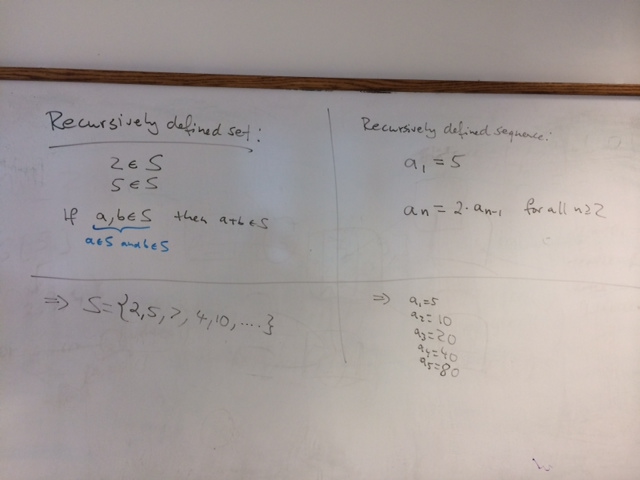 Recursively defined set:
2 ∈ S
5 ∈ S
If a, b ∈ S then a+b ∈ S
a∈S and b∈S
⇒ S = {2, 5, 7, 4, 10, ....}
Recursively defined sequence:
a₁ = 5
aₙ = 2·aₙ₋₁ for all n ≥ 2
⇒ a₁=5
a₂=10
a₃=20
a₄=40
a₅=80